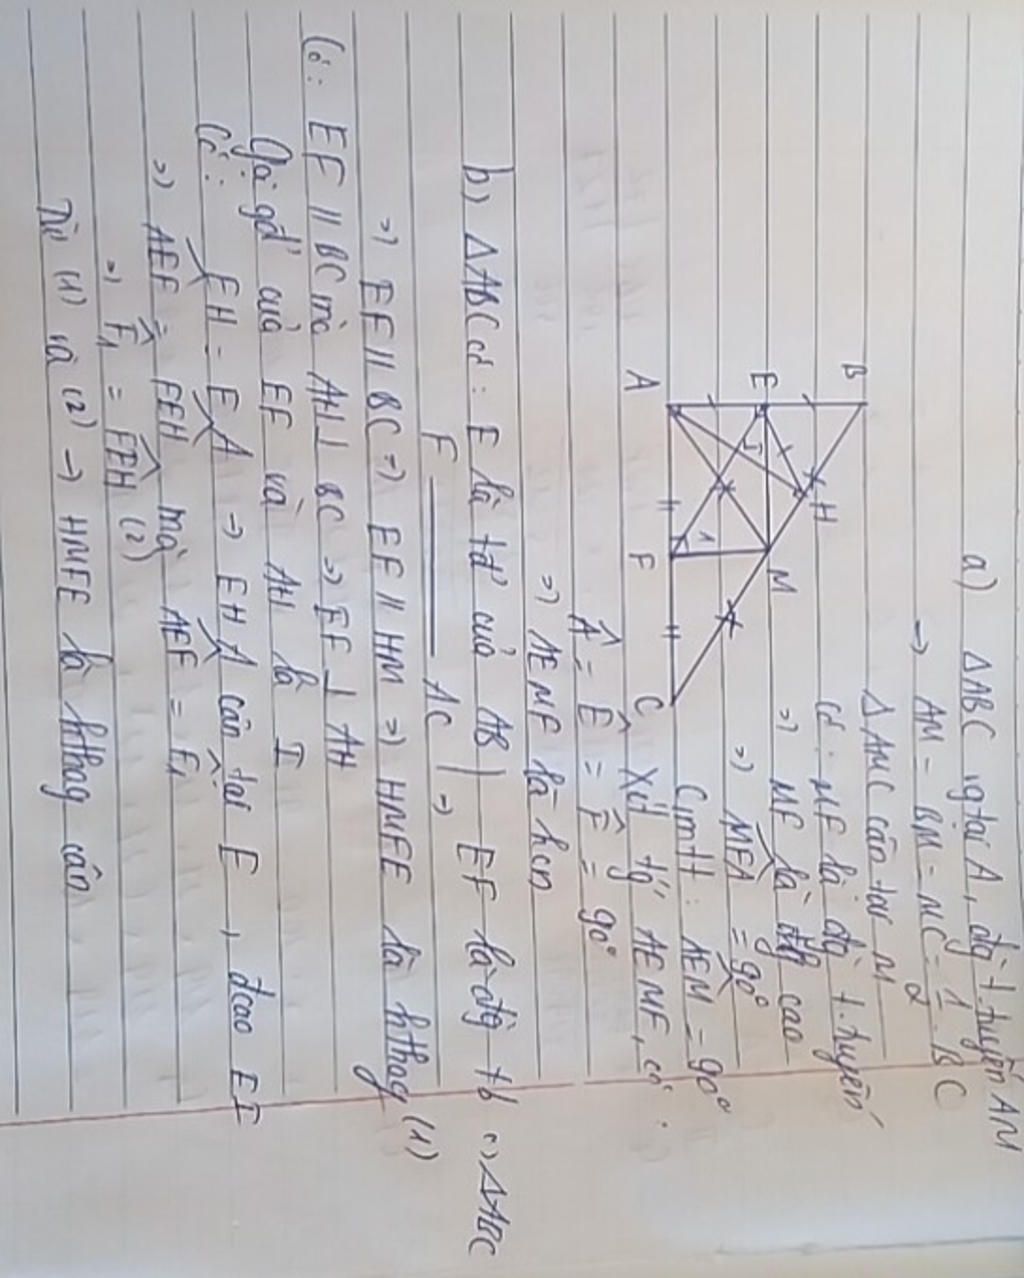 a) ΔABC vg tại A, đg t.tuyến AM
→ AM = BM = MC = 1/2 . BC
ΔAMC cân tại M
Có : MF là đg t.tuyến
=> MF là đg cao
=> MFA = 90°
Cmtt : AEM = 90°
Xét tg AEMF, có :
Â = Ê = F̂ = 90°
=> AEMF là hcn
B
E
I
H
A
1
M
F
C
b) ΔABC có : E là tđ của AB | EF là đg tb c) ΔABC
F AC | =>
=> EF // BC => EF // HM => HMFE là hthag (1)
Có : EF // BC mà AH ⊥ BC => EF ⊥ AH
Gọi gđ của EF và AH là I
Có : EH = EA → EHA cân tại E , đcao EI
=> AEF = FEH mà AEF = F₁
=> F₁ = FEH (2)
Từ (1) và (2) → HMFE là hthag cân